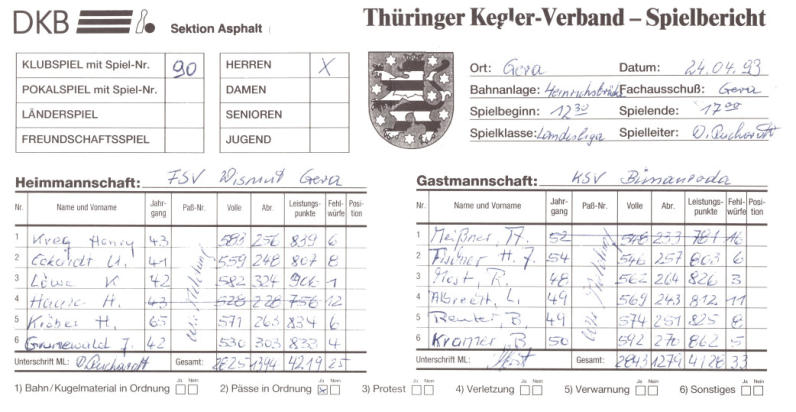 DKB Sektion Asphalt
Thüringer Kegler-Verband – Spielbericht
KLUBSPIEL mit Spiel-Nr. 90
POKALSPIEL mit Spiel-Nr.
LÄNDERSPIEL
FREUNDSCHAFTSSPIEL
HERREN X
DAMEN
SENIOREN
JUGEND
Ort: Gera Datum: 24.04.93
Bahnanlage: Fachausschuß: Gera
Spielbeginn: 12 30 Spielende: 17 00
Spielklasse: Landesliga Spielleiter:
Heimmannschaft: FSV Wismut Gera
Nr. Name und Vorname Jahrgang Paß-Nr. Volle Abr. Leistungspunkte Fehlwürfe Position
1 Henry 43 583 256 839 6
2 Eckardt U. 41 559 248 807 8
3 Löwe K 42 582 324 906 1
4 H. 43 528 228 756 12
5 Kröber H. 65 571 263 834 6
6 Grunewald J. 42 530 303 833 4
Unterschrift ML: Gesamt: 2825 1394 4219 25
Gastmannschaft: KSV
Nr. Name und Vorname Jahrgang Paß-Nr. Volle Abr. Leistungspunkte Fehlwürfe Position
1 Meißner, A. 52 548 233 781 16
2 Fischer H. J. 54 546 257 803 6
3 Most, R. 48 562 264 826 3
4 Albrecht, L. 49 569 243 812 11
5 Reuter, B. 49 574 251 825 8
6 Kramer, B. 50 592 270 862 5
Unterschrift ML: Gesamt: 2843 1279 4128 33
1) Bahn/Kugelmaterial in Ordnung Ja Nein 2) Pässe in Ordnung Ja Nein 3) Protest Ja Nein 4) Verletzung Ja Nein 5) Verwarnung Ja Nein 6) Sonstiges Ja Nein